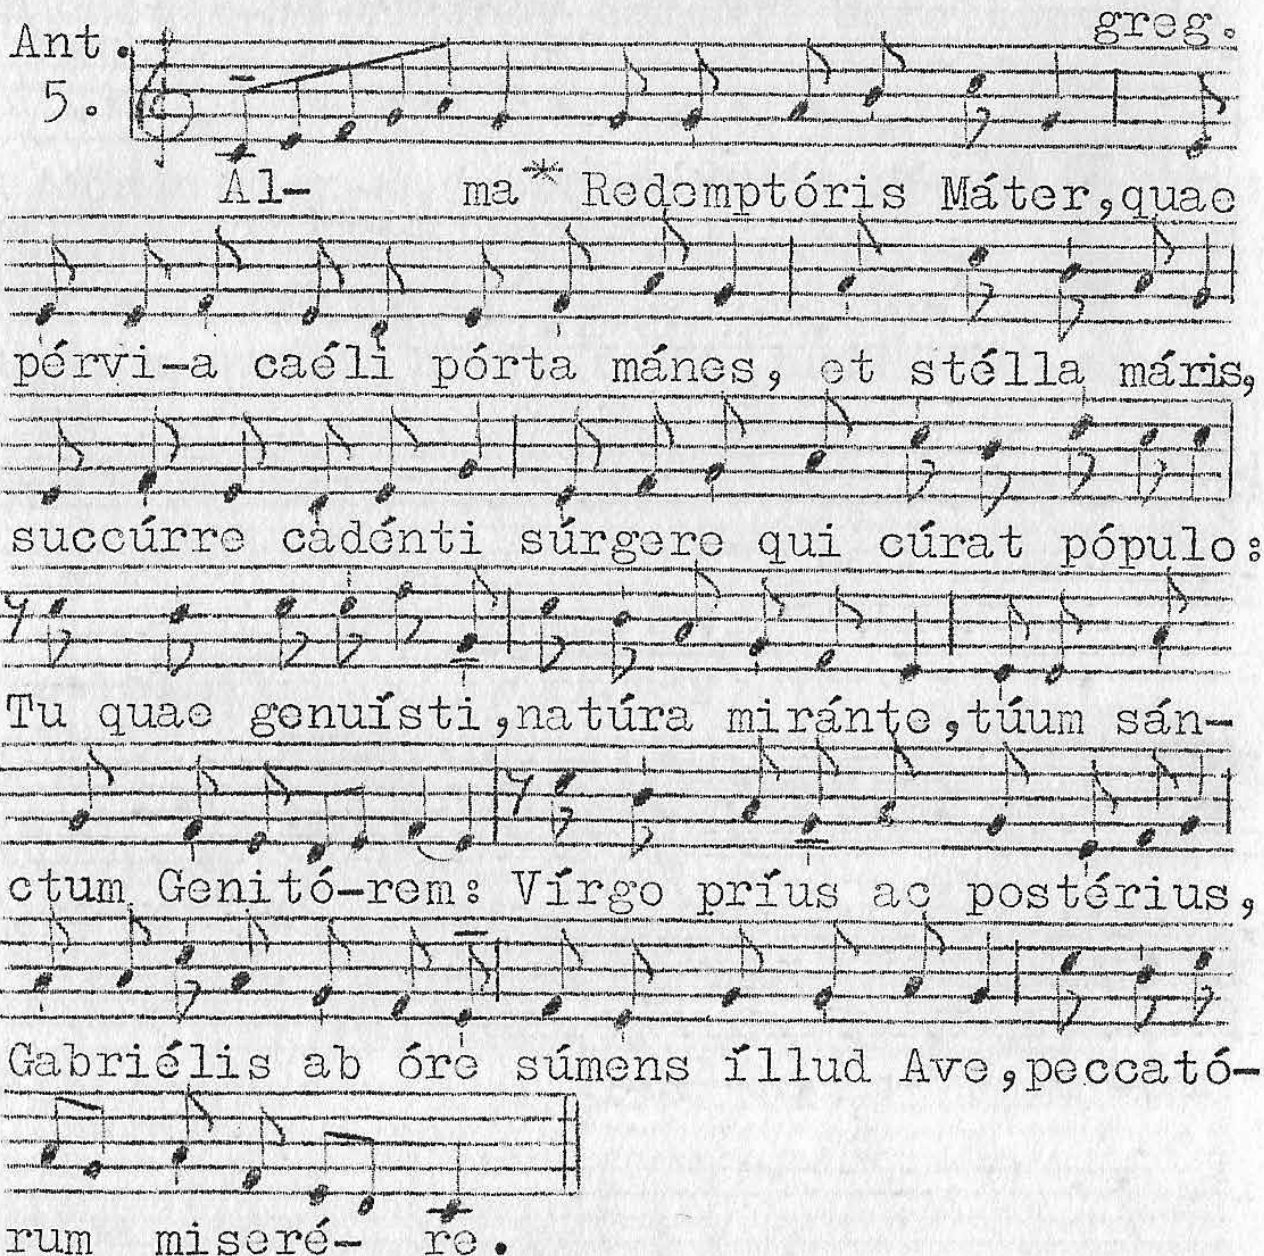 greg.
Ant.
5.
Al- ma* Redemptóris Máter,quae
pérvi-a caéli pórta mánes, et stélla máris,
succúrre cadénti súrgere qui cúrat pópulo:
Tu quae genuísti,natúra miránte,túum sán-
ctum Genitó-rem: Vírgo príus ac postérius,
Gabriélis ab óre súmens íllud Ave,peccató-
rum miseré- re.